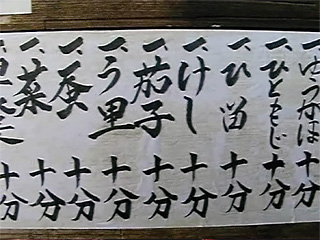 一、ゆうがほ 十分
一、ひともじ 十分
一、ひ苗 十分
一、けし 十分
一、茄子 十分
一、う里 十分
一、蚕 十分
一、菜 十分
十分